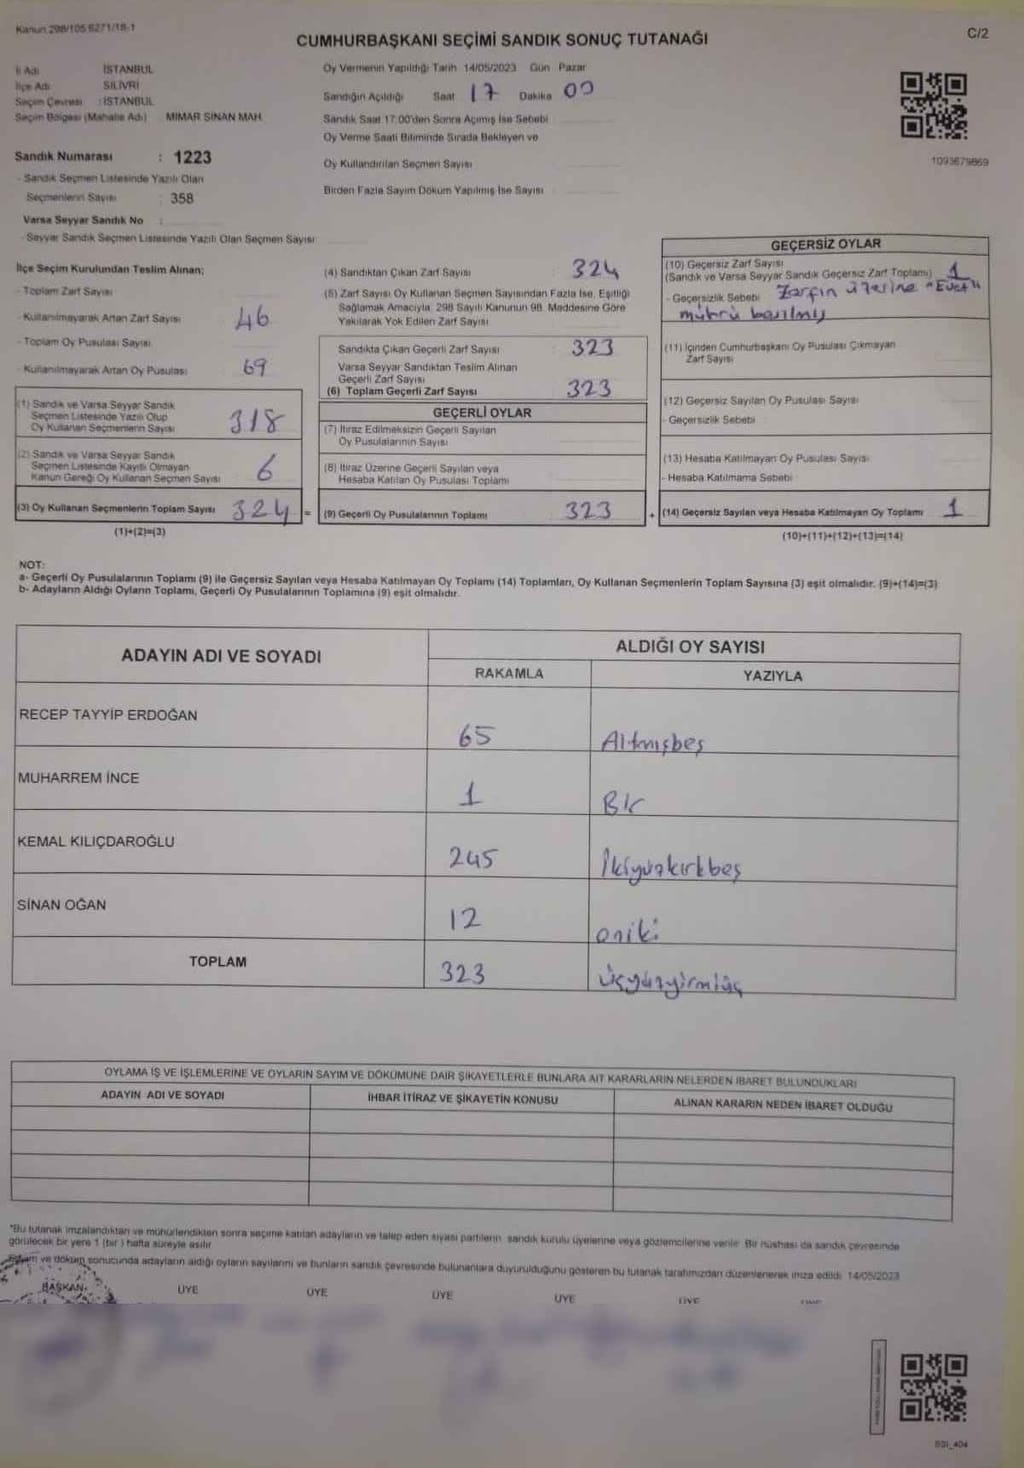 Kanun 298/105 6271/18-1
C/2
CUMHURBAŞKANI SEÇİMİ SANDIK SONUÇ TUTANAĞI
İl Adı : İSTANBUL
İlçe Adı : SİLİVRİ
Seçim Çevresi : İSTANBUL
Seçim Bölgesi (Mahalle Adı) MİMAR SİNAN MAH.
Sandık Numarası : 1223
- Sandık Seçmen Listesinde Yazılı Olan
Seçmenlerin Sayısı : 358
Varsa Seyyar Sandık No :
- Seyyar Sandık Seçmen Listesinde Yazılı Olan Seçmen Sayısı
Oy Vermenin Yapıldığı Tarih 14/05/2023 Gün Pazar
Sandığın Açıldığı Saat 17 Dakika 00
Sandık Saat 17:00'den Sonra Açımış İse Sebebi
Oy Verme Saati Bitiminde Sırada Bekleyen ve
Oy Kullandırılan Seçmen Sayısı
Birden Fazla Sayım Döküm Yapılmış İse Sayısı
1093679869
İlçe Seçim Kurulundan Teslim Alınan;
- Toplam Zarf Sayısı
- Kullanılmayarak Artan Zarf Sayısı 46
- Toplam Oy Pusulası Sayısı
- Kullanılmayarak Artan Oy Pusulası 69
(1) Sandık ve Varsa Seyyar Sandık
Seçmen Listesinde Yazılı Olup
Oy Kullanan Seçmenlerin Sayısı 318
(2) Sandık ve Varsa Seyyar Sandık
Seçmen Listesinde Kayıtlı Olmayan
Kanun Gereği Oy Kullanan Seçmen Sayısı 6
(3) Oy Kullanan Seçmenlerin Toplam Sayısı 324 =
(1)+(2)=(3)
(4) Sandıktan Çıkan Zarf Sayısı 324
(5) Zarf Sayısı Oy Kullanan Seçmen Sayısından Fazla İse, Eşitliği
Sağlamak Amacıyla 298 Sayılı Kanunun 98. Maddesine Göre
Yakılarak Yok Edilen Zarf Sayısı
Sandıkta Çıkan Geçerli Zarf Sayısı 323
Varsa Seyyar Sandıktan Teslim Alınan
Geçerli Zarf Sayısı
(6) Toplam Geçerli Zarf Sayısı 323
GEÇERLİ OYLAR
(7) İtiraz Edilmeksizin Geçerli Sayılan
Oy Pusulalarının Sayısı
(8) İtiraz Üzerine Geçerli Sayılan veya
Hesaba Katılan Oy Pusulası Toplamı
(9) Geçerli Oy Pusulalarının Toplamı 323 +
GEÇERSİZ OYLAR
(10) Geçersiz Zarf Sayısı
(Sandık ve Varsa Seyyar Sandık Geçersiz Zarf Toplamı) 1
- Geçersizlik Sebebi Zarfın üzerine "Evet"
mührü basılmış
(11) İçinden Cumhurbaşkanı Oy Pusulası Çıkmayan
Zarf Sayısı
(12) Geçersiz Sayılan Oy Pusulası Sayısı
- Geçersizlik Sebebi
(13) Hesaba Katılmayan Oy Pusulası Sayısı
- Hesaba Katılmama Sebebi
(14) Geçersiz Sayılan veya Hesaba Katılmayan Oy Toplamı 1
(10)+(11)+(12)+(13)=(14)
NOT:
a- Geçerli Oy Pusulalarının Toplamı (9) ile Geçersiz Sayılan veya Hesaba Katılmayan Oy Toplamı (14) Toplamları, Oy Kullanan Seçmenlerin Toplam Sayısına (3) eşit olmalıdır. (9)+(14)=(3)
b- Adayların Aldığı Oyların Toplamı, Geçerli Oy Pusulalarının Toplamına (9) eşit olmalıdır.
ADAYIN ADI VE SOYADI
ALDIĞI OY SAYISI
RAKAMLA YAZIYLA
RECEP TAYYİP ERDOĞAN 65 Altmışbeş
MUHARREM İNCE 1 Bir
KEMAL KILIÇDAROĞLU 245 İkiyüzkırkbeş
SİNAN OĞAN 12 oniki
TOPLAM 323 üçyüzyirmiüç
OYLAMA İŞ VE İŞLEMLERİNE VE OYLARIN SAYIM VE DÖKÜMÜNE DAİR ŞİKAYETLERLE BUNLARA AİT KARARLARIN NELERDEN İBARET BULUNDUKLARI
ADAYIN ADI VE SOYADI İHBAR İTİRAZ VE ŞİKAYETİN KONUSU ALINAN KARARIN NEDEN İBARET OLDUĞU
"Bu tutanak imzalandıktan ve mühürlendikten sonra seçime katılan adayların ve talep eden siyasi partilerin sandık kurulu üyelerine veya gözlemcilerine verilir. Bir nüshası da sandık çevresinde
görülecek bir yere 1 (bir ) hafta süreyle asılır
Sayım ve döküm sonucunda adayların aldığı oyların sayılarını ve bunların sandık çevresinde bulunanlara duyurulduğunu gösteren bu tutanak tarafımızdan düzenlenerek imza edildi. 14/05/2023
BAŞKAN ÜYE ÜYE ÜYE ÜYE ÜYE